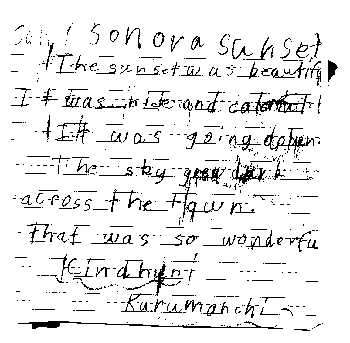 Sonora sunset
The sunset was beautifu
It was nice and colorful
It was going down
The sky grew dark
across the town.
That was so wonderfu
Kurumanchi